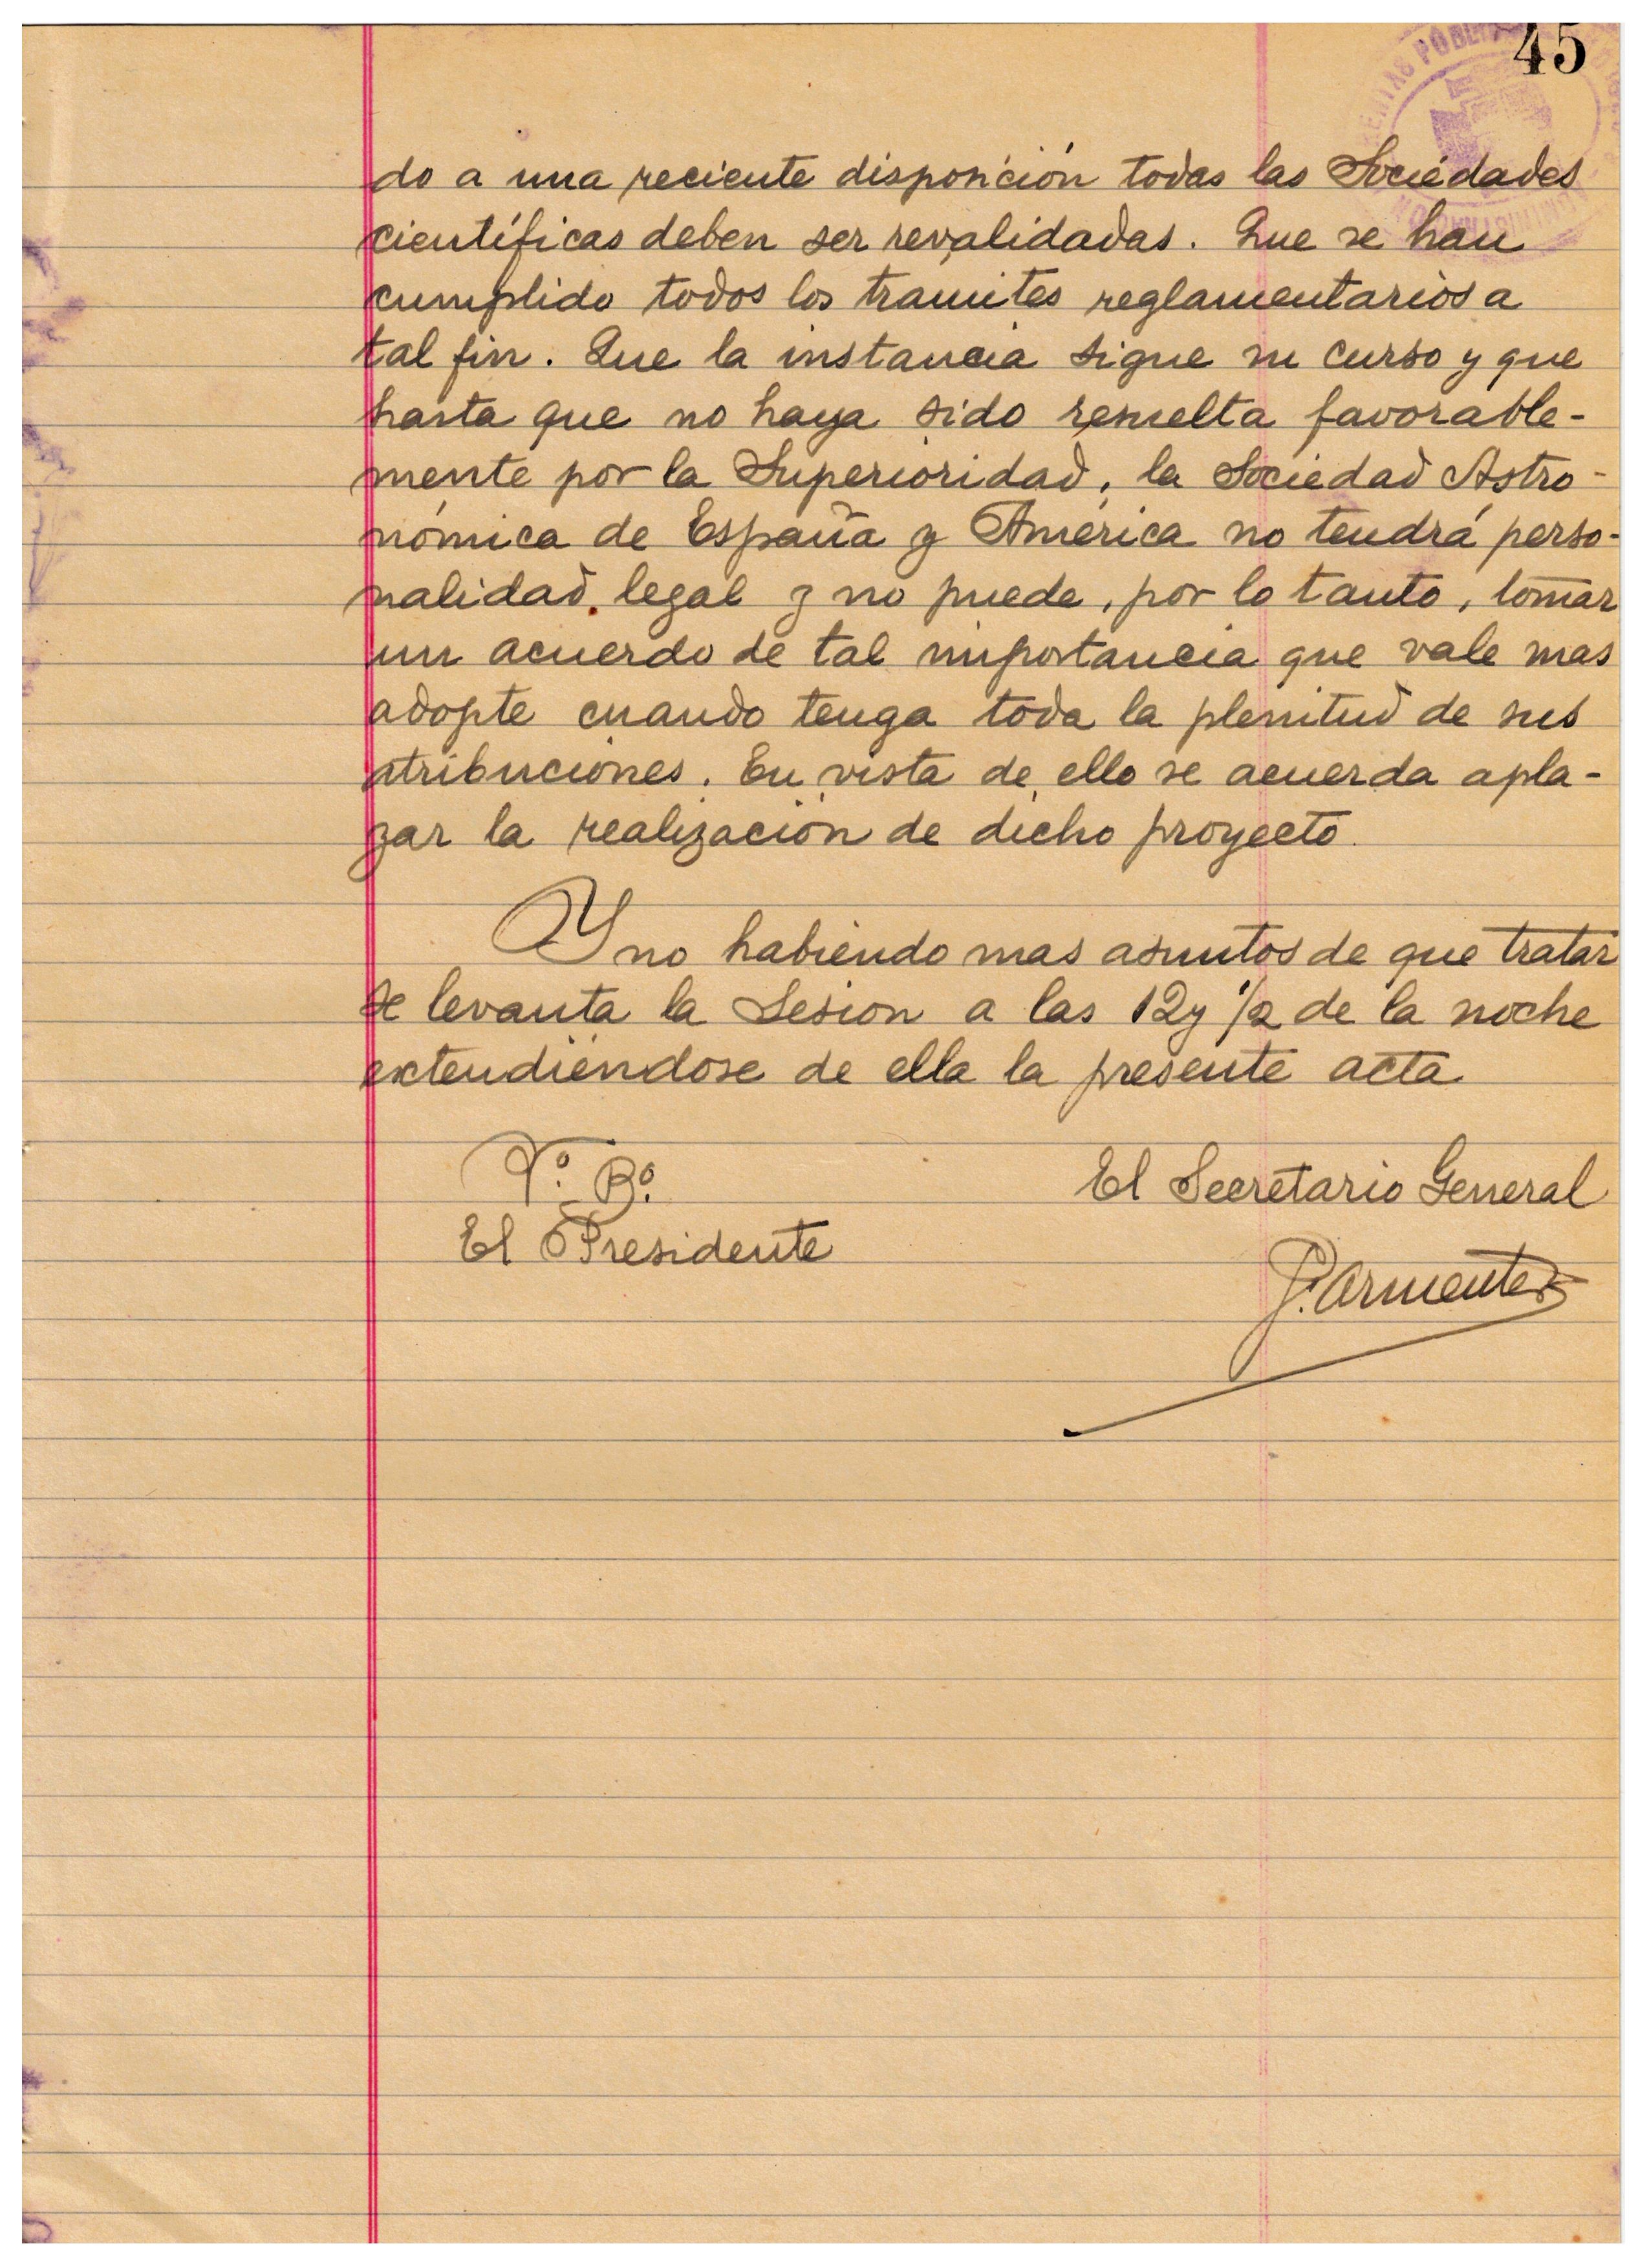 45
do a una reciente disposición todas las Sociedades
científicas deben ser revalidadas. Que se han
cumplido todos los tramites reglamentarios a
tal fin. Que la instancia sigue su curso y que
hasta que no haya sido resuelta favorable-
mente por la Superioridad, la Sociedad Astro-
nómica de España y América no tendrá perso-
nalidad legal y no puede, por lo tanto, tomar
un acuerdo de tal importancia que vale mas
adopte cuando tenga toda la plenitud de sus
atribuciones. En vista de ello se acuerda apla-
zar la realización de dicho proyecto.
Y no habiendo mas asuntos de que tratar
se levanta la Sesion a las 12 y 1/2 de la noche
extendiéndose de ella la presente acta
Vº. Bº.
El Presidente
El Secretario General
J. Armenter